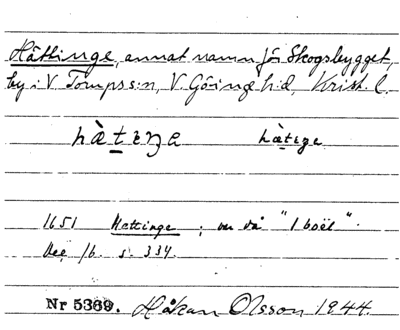 Hättinge, annat namn för Skogsbygget,
by i V. Torup s:n, V. Göinge h:d, Krist. l.
hæ̀tıŋe hæ̀tıge
1651 Hettinge ; var då "1 boël".
s. 334.
Nr 5369. Håkan Olsson 1944.